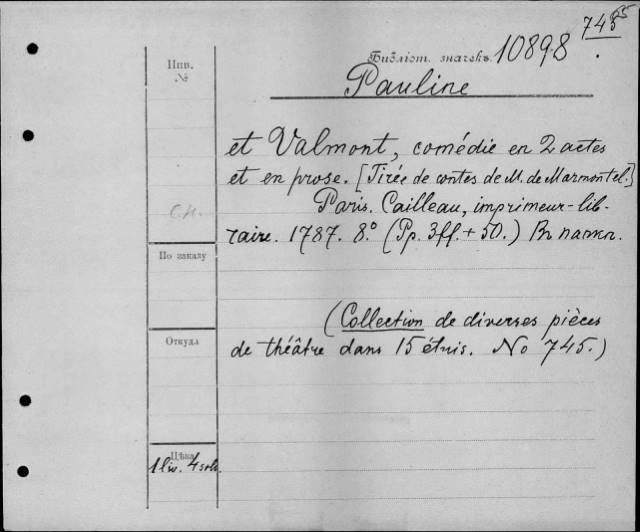 745
Инв. №
Библіот. значекъ. 10898
Pauline
et Valmont, comédie en 2 actes
et en prose. [Tirée de contes de M. de Marmontel.]
Paris. Cailleau, imprimeur-lib-
raire. 1787. 8.° (Pp. 3ff. + 50.) Въ папкѣ.
По заказу
(Collection de diverses pièces
Откуда
de théâtre dans 15 étuis. No 745.)
Цѣна
1 liv. 4 sols.